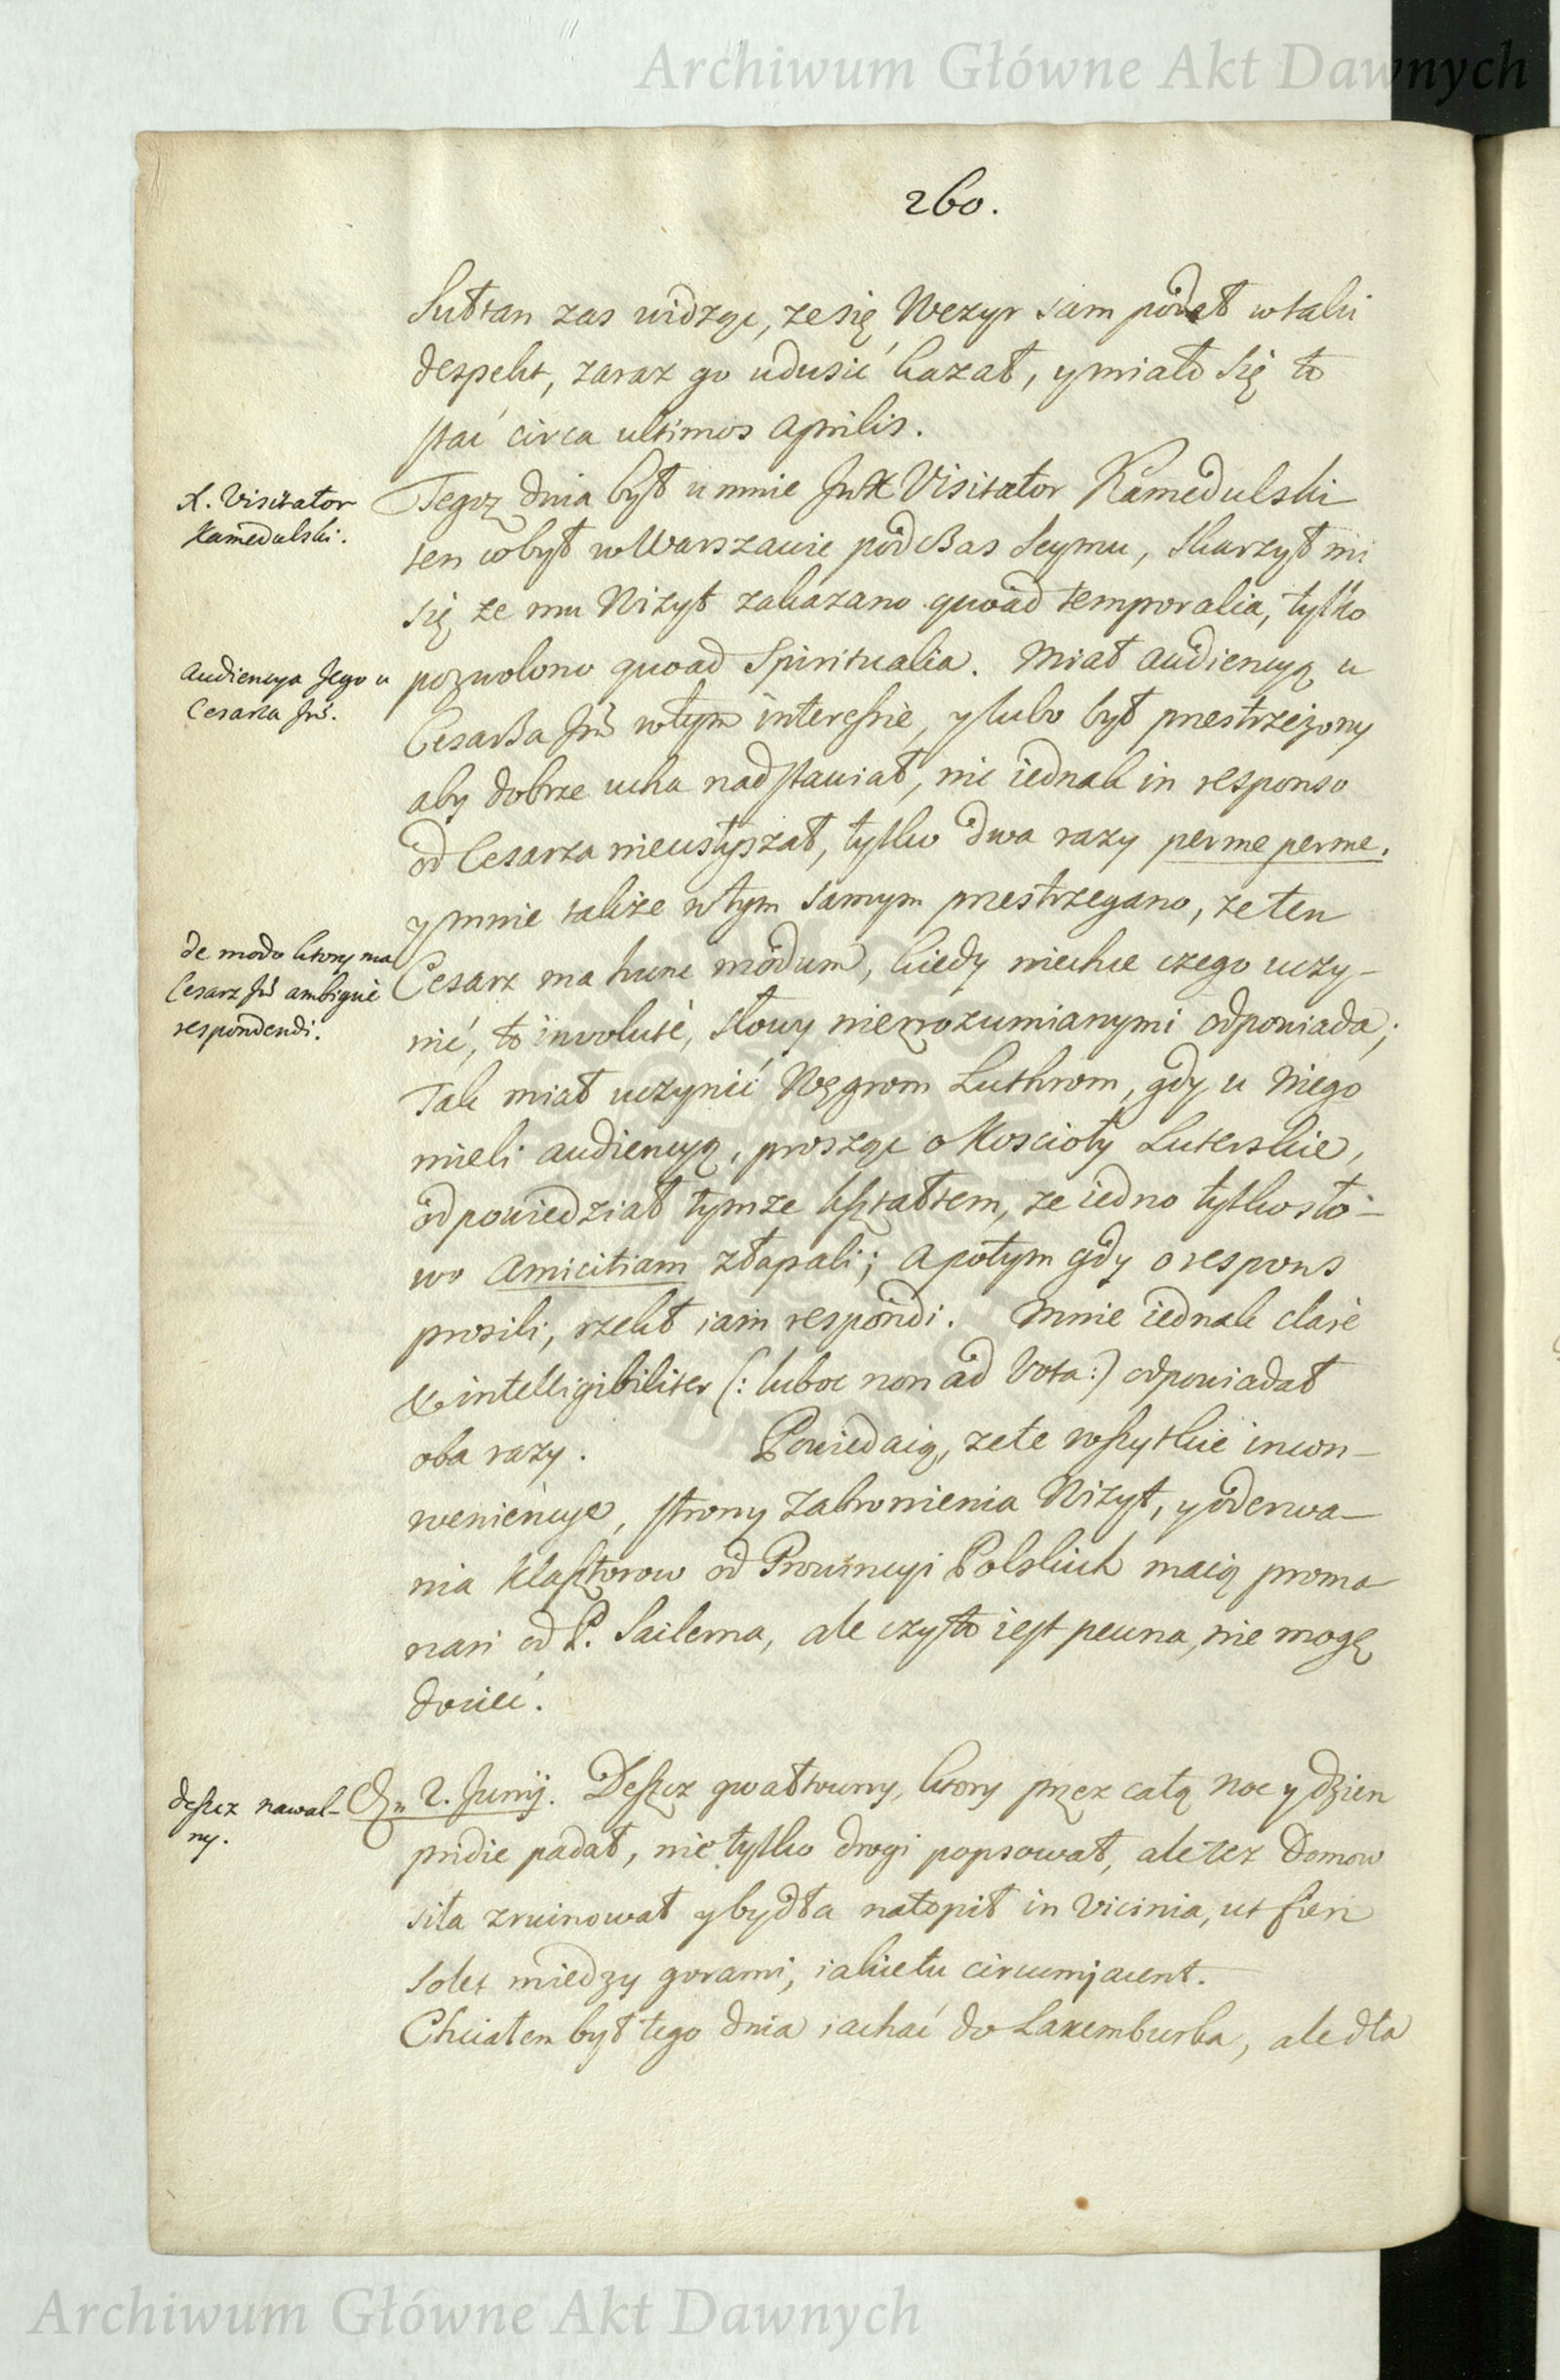 Archiwum Główne Akt Dawnych
260.
Sułtan zas widząc, ze się Wezyr sam podał w taki
despekt, zaraz go udusić kazał, y miało się to
stać circa ultimos Aprilis.
X. Visitator
Kamedulski.
Tegoz dnia był u mnie JmX Visitator Kamedulski
ten co był w Warszawie podczas Seymu, skarzył mi
się ze mu Wizyt zakazano quoad temporalia, tylko
Audiencya Jego u
Cesarza Jmć.
pozwolono quoad Spiritualia. Miał audiencyą u
Cesarza Jmć w tym interessie, y lubo był przestrzeżony
aby dobrze ucha nadstawiał, nic iednak in responso
od Cesarza nieusłyszał, tylko dwa razy perme perme.
y mnie także w tym samym przestrzegano, ze ten
de modo ktory ma
Cesarz Jmć ambiguè
respondendi.
Cesarz ma hunc modum, kiedy niechce czego uczy-
nić, to involutè, słowy niezrozumianymi odpowiada;
Tak miał uczynić Węgrom Luthrom, gdy u Niego
mieli audiencyą, prosząc o Koscioły Luterskie,
odpowiedział tymze kształtem, ze iedno tylko sło-
wo Amicitiam złapali; a potym gdy o respons
prosili, rzekł iam respondi. Mnie iednak clarè
& intelligibiliter (: luboc non ad Vota :) odpowiadał
oba razy. Powiedaią, ze te wszytkie incon-
weniencye, strony Zabronienia Wizyt, y oderwa-
nia Klasztorow od Prowincyi Polskich maią proma-
nari od P. Sailerna, ale czy to iest pewna, nie mogę
dociec.
deszcz nawal-
ny.
2. Junij. Deszcz gwałtowny, ktory przez całą noc y dzien
pridie padał, nie tylko drogi popsował, ale tez Domow
siła zruinował y bydła natopił in Vicinia, ut fieri
solet miedzy gorami, iakie tu circumjacent.
Chciałem był tego dnia iachać do Laxemburka, ale dla
Archiwum Główne Akt Dawnych